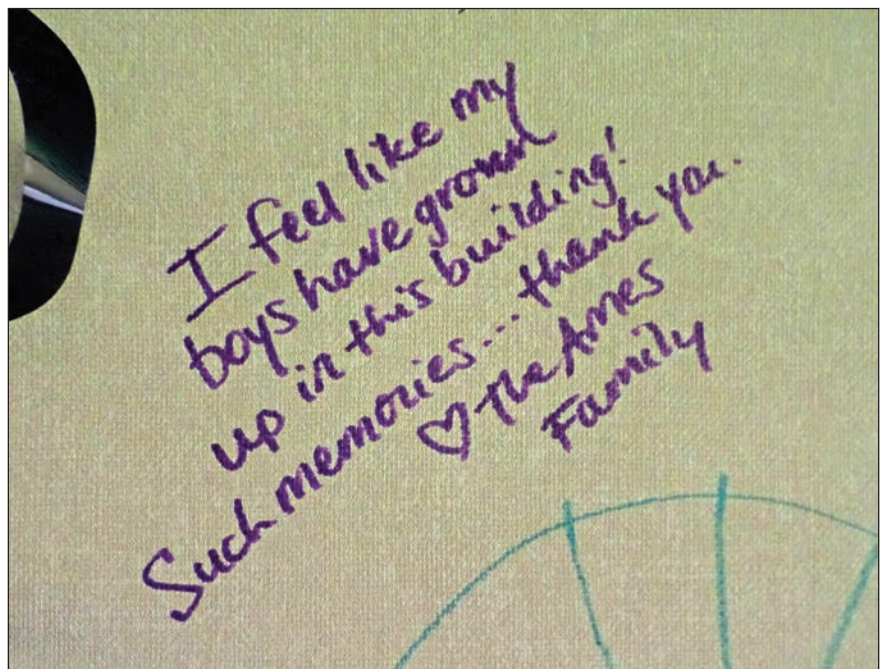 I feel like my
boys have grown
up in this building!
Such memories... thank you.
♡ The Ames
Family